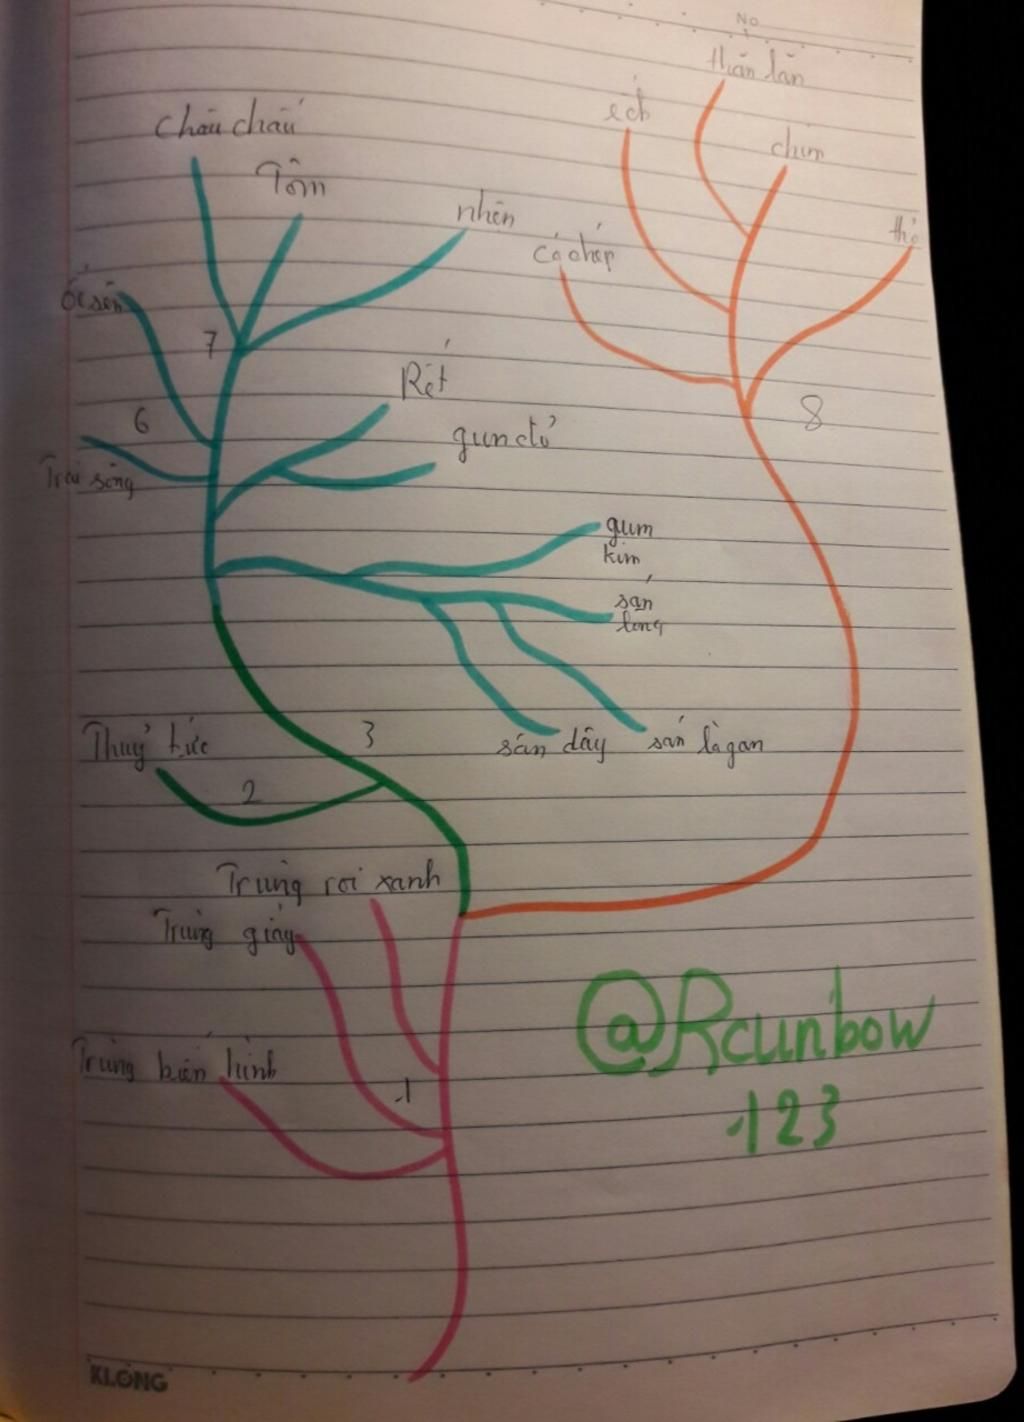 No
thằn lằn
ếch
Châu chấu
chim
Tôm
nhện
thỏ
cá chép
ốc sên
7
Rết
6
8
giun đỏ
Trai sông
giun
kim
sán
lông
3
Thuỷ tức
sán dây
sán lá gan
2
Trùng roi xanh
Trùng giày
@Rainbow
Trùng biến hình
1
123
KLONG